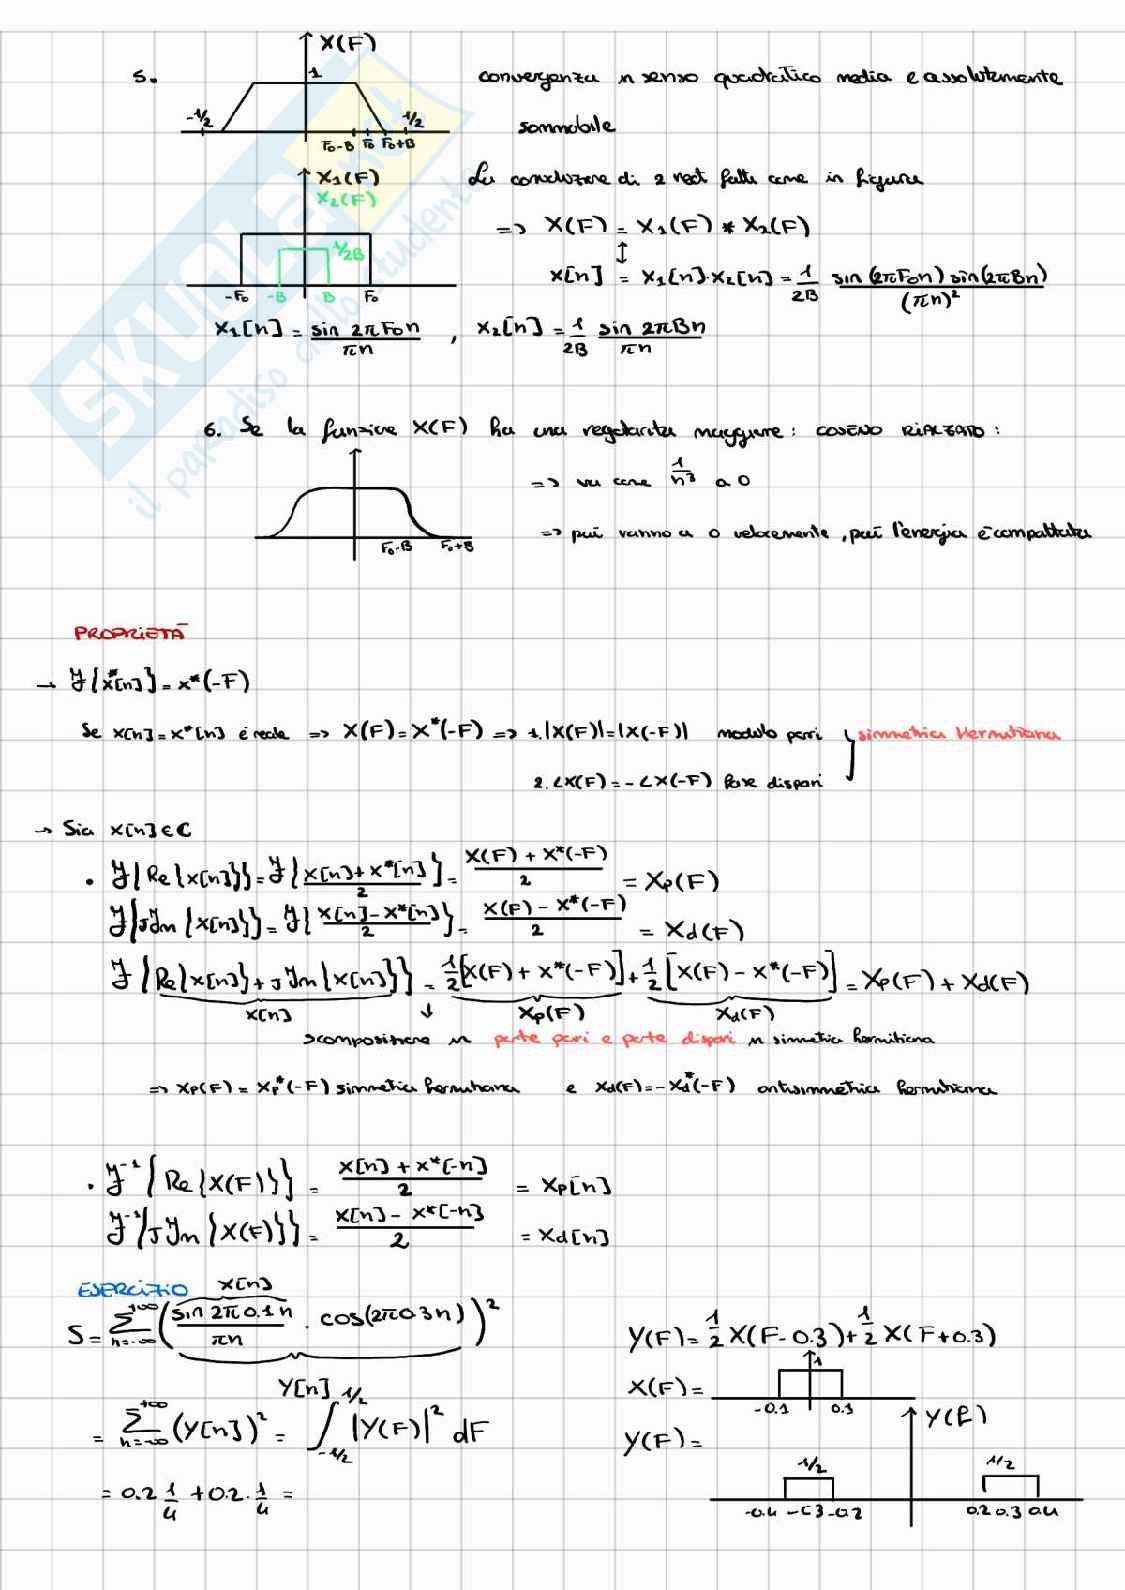 X(F)
5.
1
-1/2
1/2
F0-B F0 F0+B
convergenza in senso quadratico media e assolutamente
sommabile
X1(F)
X2(F)
1/2B
-F0 -B B F0
La convoluzione di 2 rect fatte come in figura
=> X(F) = X1(F) * X2(F)
↕
x[n] = x1[n]·x2[n] = 1/2B sin(2πF0n) sin(2πBn)/(πn)²
x1[n] = sin 2πF0n/πn , x2[n] = 1/2B sin 2πBn/πn
6. Se la funzione X(F) ha una regolarità maggiore: COSENO RIALZATO:
=> va come 1/n³ a 0
F0-B F0+B
=> più vanno a 0 velocemente, più l'energia è compattata
PROPRIETÀ
→ F{x*[n]} = x*(-F)
Se x[n] = x*[n] è reale => X(F) = X*(-F) => 1. |X(F)| = |X(-F)| modulo pari
simmetria Hermitiana
2. ∠X(F) = -∠X(-F) fase dispari
→ Sia x[n] ∈ C
• F{Re{x[n]}} = F{x[n]+x*[n]/2} = X(F) + X*(-F)/2 = Xp(F)
F{jIm{x[n]}} = F{x[n]-x*[n]/2} = X(F) - X*(-F)/2 = Xd(F)
F{Re{x[n]} + jIm{x[n]}} = 1/2[X(F) + X*(-F)] + 1/2[X(F) - X*(-F)] = Xp(F) + Xd(F)
x[n] ↓ Xp(F) Xd(F)
scomposizione in parte pari e parte dispari in simmetria hermitiana
=> Xp(F) = Xp*(-F) simmetria hermitiana e Xd(F) = -Xd*(-F) antisimmetria hermitiana
• F⁻¹{Re{X(F)}} = x[n] + x*[-n]/2 = xp[n]
F⁻¹{jIm{X(F)}} = x[n] - x*[-n]/2 = xd[n]
ESERCIZIO
x[n]
S = Σ n=-∞ +∞ (sin 2π0.1n/πn · cos(2π0.3n))²
Y[n]
= Σ n=-∞ +∞ (Y[n])² = ∫ -1/2 1/2 |Y(F)|² dF
= 0.2 1/4 + 0.2 · 1/4 =
Y(F) = 1/2 X(F-0.3) + 1/2 X(F+0.3)
X(F) =
1
-0.1 0.1
Y(F) =
Y(F)
1/2 1/2
-0.4 -0.3 -0.2 0.2 0.3 0.4
SKUOLA.net
il paradiso dello studente